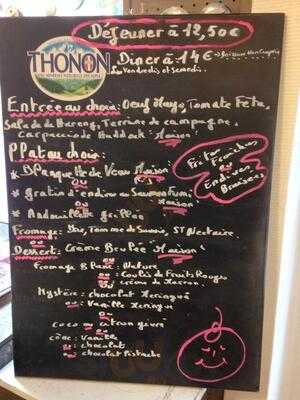 Déjeuner à 12,50€
THONON
Diner à 14€ → Boissons Non Compris
Les Vendredis et Samedi.
Entrée au choix: Oeuf Mayo, Tomate Feta,
Salade de Hareng, Terrine de campagne,
Carpaccio de Haddock "Maison"
Plat au choix:
* Blanquette de Veau Maison
ou
* gratin d'endive au Saumon Fumé
ou Maison
* Andouillette grillée
Frites Fraiches
ou
Endives
Braisées
Fromage: Brie, Tomme de Savoie, St Nectaire
ou
Dessert: Crème Brulée "Maison"
Fromage Blanc: Nature
ou: Coulis de Fruits Rouges
ou: crème de Marron
Mystère: chocolat Meringué
ou: Vanille Meringue
ou
Coco ou citron givré
ou
cône: Vanille
ou: chocolat
ou: chocolat Pistache